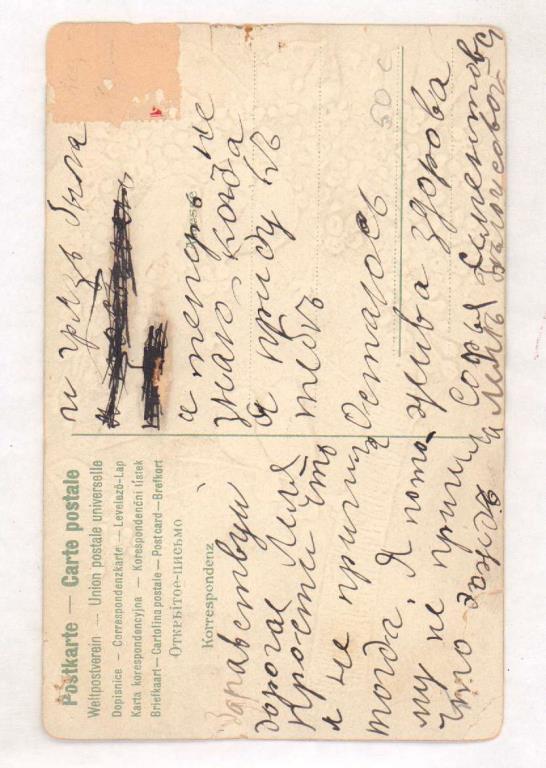 Postkarte — Carte postale
Weltpostverein — Union postale universelle
Dopisnice — Correspondenzkarte — Levelező-Lap
Karta korespondencyjna — Korespondenční lístek
Briefkaart — Cartolina postale — Postcard — Brefkort
Открытое письмо
Korrespondenz
Здравствуй
дорогая Леля
Прости что
я не пришла
тогда. Я пото
му не пришла
что
и грязь была
а теперь
знаю когда не
я приду къ
тебѣ
Остаюсь
жива здорова
Соф
а Лелѣ
50 с